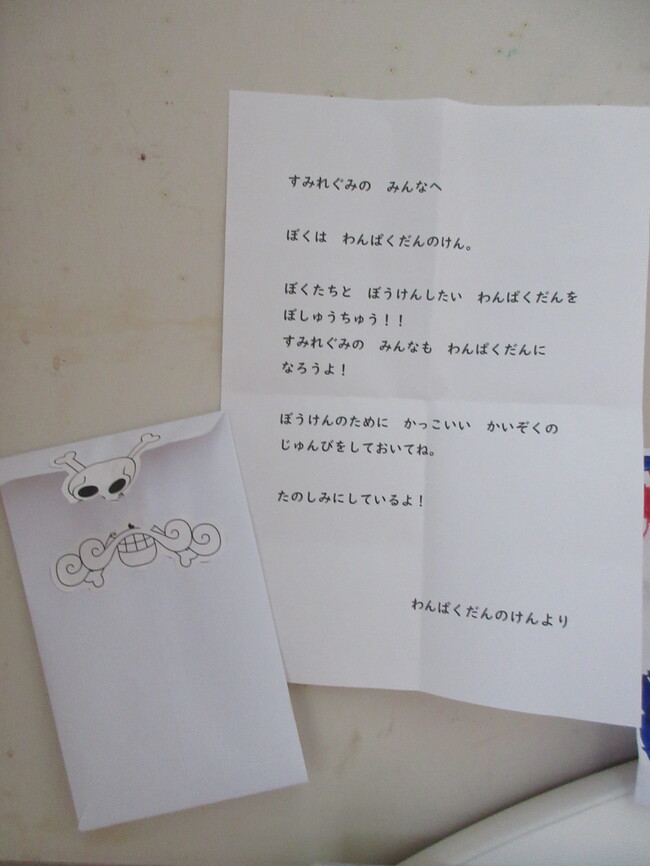 すみれぐみの　みんなへ
ぼくは　わんぱくだんのけん。
ぼくたちと　ぼうけんしたい　わんぱくだんを
ぼしゅうちゅう！！
すみれぐみの　みんなも　わんぱくだんに
なろうよ！
ぼうけんのために　かっこいい　かいぞくの
じゅんびをしておいてね。
たのしみにしているよ！
わんぱくだんのけんより